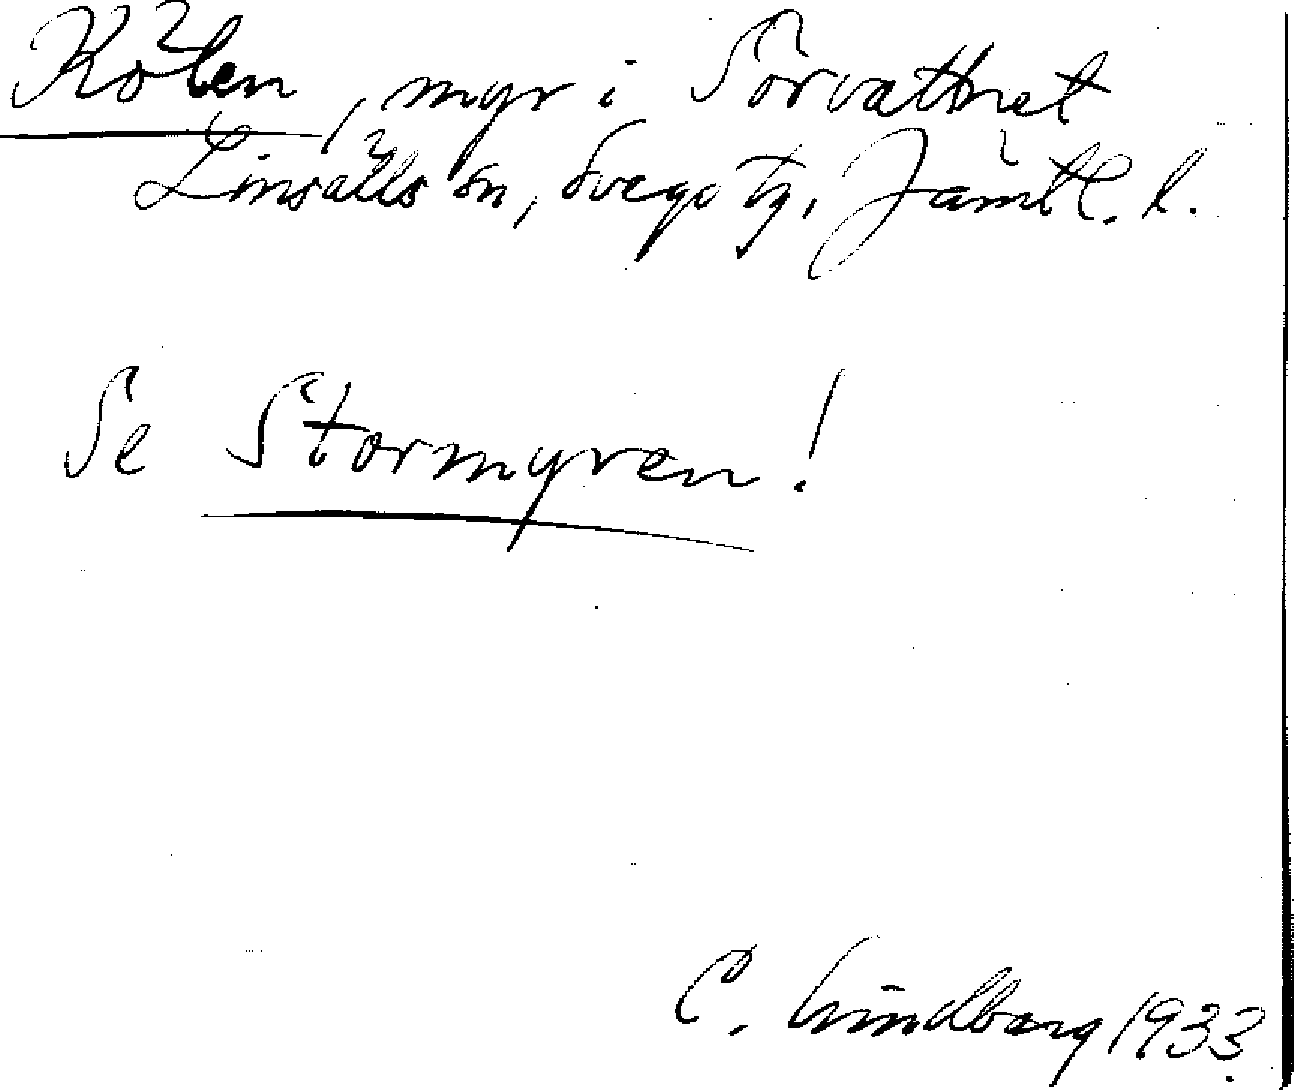 Kölen, myr i Sörvattnet
Linsälls sn, Svegs tg, Jämtl. l.
Se Stormyren!
C. Lindberg 1933